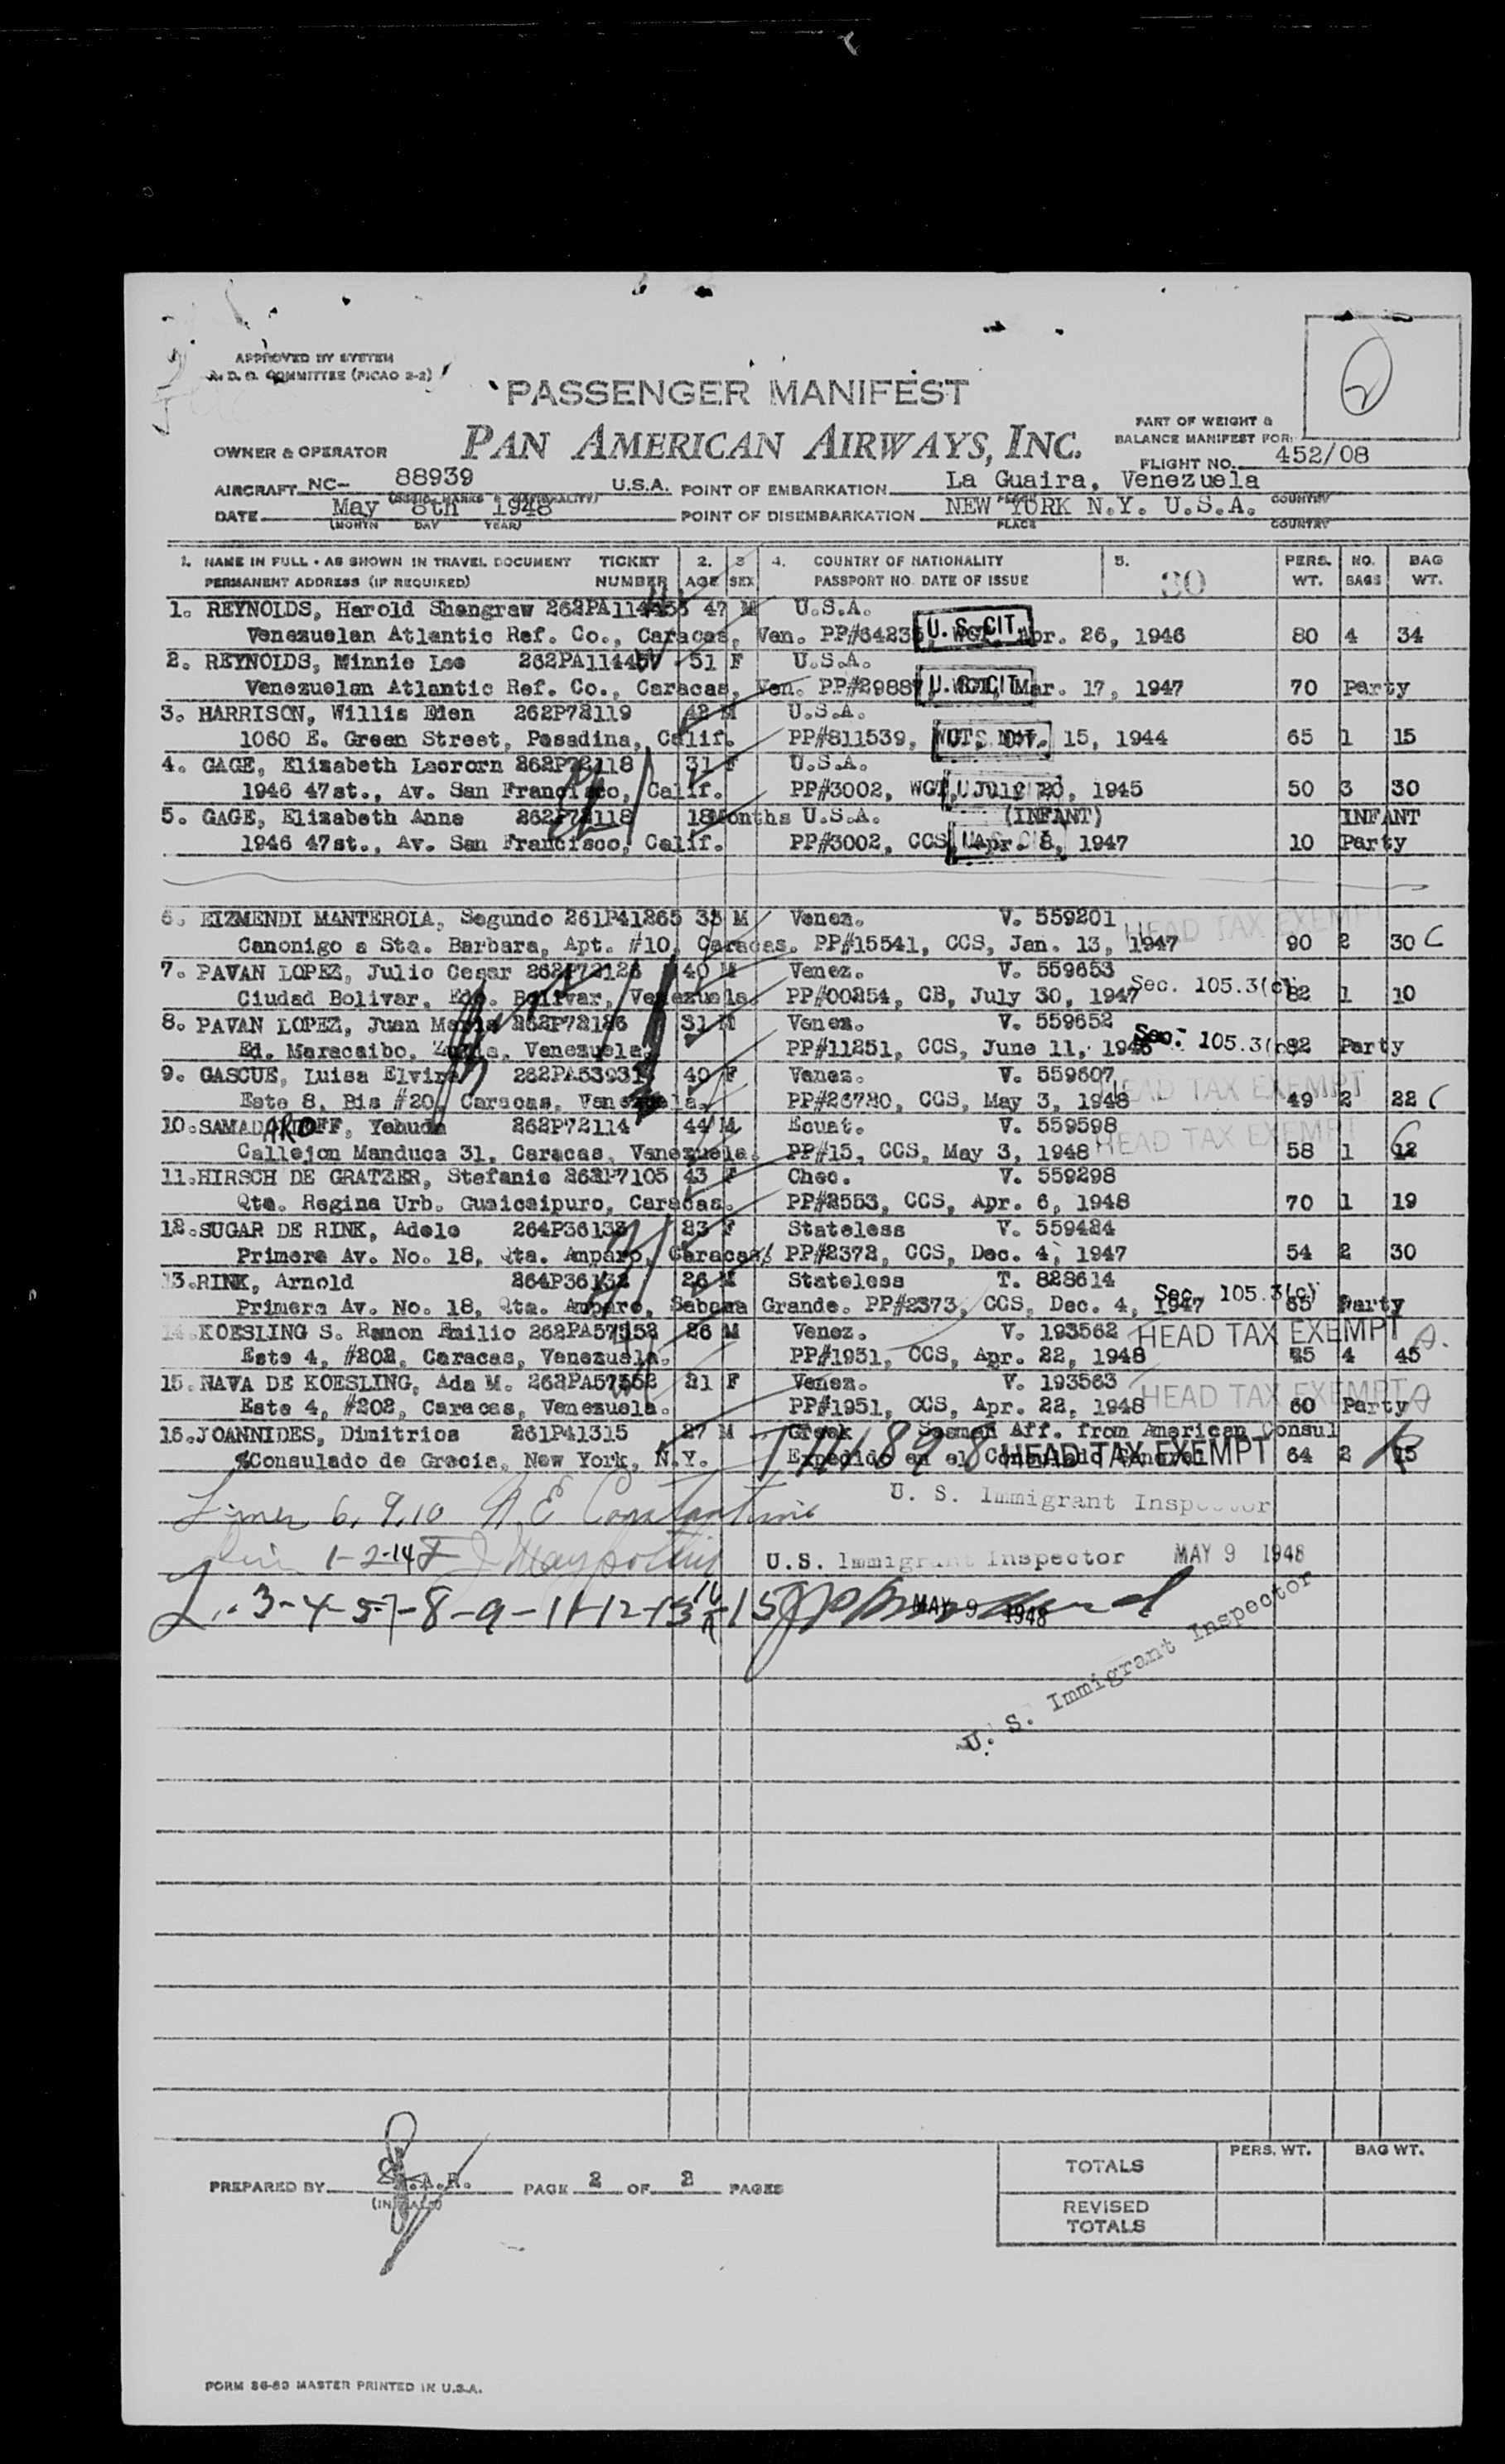 APPROVED BY SYSTEM
A. D. O. COMMITTEE (PICAO 2-2)
2
PASSENGER MANIFEST
PART OF WEIGHT &
BALANCE MANIFEST FOR:
OWNER & OPERATOR PAN AMERICAN AIRWAYS, INC.
FLIGHT NO. 452/08
AIRCRAFT NC- 88939 U.S.A. POINT OF EMBARKATION La Guaira, Venezuela
DATE May 8th 1948 POINT OF DISEMBARKATION NEW YORK N.Y. U.S.A.
(MONTH DAY YEAR) PLACE COUNTRY
1. NAME IN FULL - AS SHOWN IN TRAVEL DOCUMENT TICKET 2. 3 4. COUNTRY OF NATIONALITY 5. PERS. NO. BAG
PERMANENT ADDRESS (IF REQUIRED) NUMBER AGE SEX PASSPORT NO. DATE OF ISSUE 30 WT. BAGS WT.
1. REYNOLDS, Harold Shangraw 47 M U.S.A.
Venezuelan Atlantic Ref. Co., Caracas, Ven. U.S. CIT. Apr. 26, 1946 80 4 34
2. REYNOLDS, Minnie Lee 51 F U.S.A.
Venezuelan Atlantic Ref. Co., Caracas, Ven. U.S. CIT. Mar. 17, 1947 70 Party
3. HARRISON, Willis Eden 262P72119 42 M U.S.A.
1060 E. Green Street, Pasadina, Calif. PP#811539, 15, 1944 65 1 15
4. GAGE, Elizabeth 262P72118 31 F U.S.A.
1946 47st., Av. San Francisco, Calif. PP#3002, July 20, 1945 50 3 30
5. GAGE, Elizabeth Anne 262P72118 18Months U.S.A. (INFANT) INFANT
1946 47st., Av. San Francisco, Calif. PP#3002, CCS, Apr. 8, 1947 10 Party
6. EIZMENDI MANTEROLA, Segundo 261P41265 M Venez. V. 559201 HEAD TAX EXEMPT
Canonigo a Sta. Barbara, Apt. #10, Caracas. PP#15541, CCS, Jan. 13, 1947 90 2 30 C
7. PAVAN LOPEZ, Julio Cesar 40 M Venez. V. 559653
Ciudad Bolivar, Edo. Bolivar, Venezuela. PP#00254, CB, July 30, 1947 Sec. 105.3(c) 82 1 10
8. PAVAN LOPEZ, Juan Maria 262P72126 31 M Venez. V. 559652
Ed. Maracaibo, Zulia, Venezuela. PP#11251, CCS, June 11, Sec. 105.3(c) 82 Party
9. GASCUE, Luisa Elvira 40 F Venez. V. 559607
Este 8, Bis #20, Caracas, Venezuela. PP#26720, CCS, May 3, 1948 HEAD TAX EXEMPT 49 2 22 C
10. SAMADAROFF, Yehuda 262P72114 44 M Ecuat. V. 559598
Callejon Manduca 31, Caracas, Venezuela. PP#15, CCS, May 3, 1948 HEAD TAX EXEMPT 58 1 12 C
11. HIRSCH DE GRATZER, Stefanie 262P7105 43 F Chec. V. 559298
Qta. Regina Urb. Guaicaipuro, Caracas. PP#2553, CCS, Apr. 6, 1948 70 1 19
12. SUGAR DE RINK, Adele 264P36132 23 F Stateless V. 559424
Primera Av. No. 18, Qta. Amparo, Caracas. PP#2372, CCS, Dec. 4, 1947 54 2 30
13. RINK, Arnold 264P36132 26 M Stateless T. 828614
Primera Av. No. 18, Qta. Amparo, Sabana Grande. PP#2373, CCS, Dec. 4, 1947 Sec. 105.3(c) Party
14. KOESLING S. Ramon Emilio 26 M Venez. V. 193562 HEAD TAX EXEMPT
Este 4, #202, Caracas, Venezuela. PP#1951, CCS, Apr. 22, 1948 4 45
15. NAVA DE KOESLING, Ada M. 21 F Venez. V. 193563
Este 4, #202, Caracas, Venezuela. PP#1951, CCS, Apr. 22, 1948 HEAD TAX EXEMPT 60 Party
16. JOANNIDES, Dimitrios 261P41315 27 M Greek Seaman Aff. from American Consul
%Consulado de Grecia, New York, N.Y. Expedido en el Consulado HEAD TAX EXEMPT 64 2 15
Lines 6, 9, 10 N E Constantine U. S. Immigrant Inspector
1-2-14 U.S. Immigrant Inspector MAY 9 1948
L. 3-4-5-7-8-9-11-12-13 15 MAY 9 1948
U. S. Immigrant Inspector
PREPARED BY PAGE 2 OF 2 PAGES
(INITIALS)
TOTALS PERS. WT. BAG WT.
REVISED
TOTALS
FORM 36-63 MASTER PRINTED IN U.S.A.